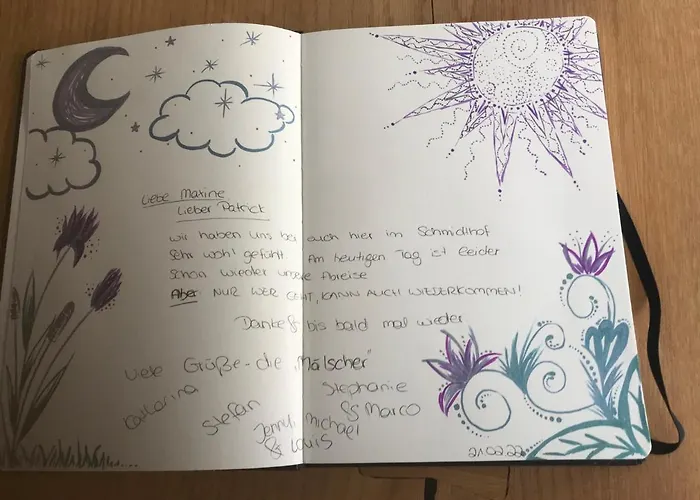 Liebe Maxine
Lieber Patrick
wir haben uns bei euch hier im Schmidlhof
Sehr wohl gefühlt. Am heutigen Tag ist Leider
schon wieder unsere Abreise
Aber NUR WER GEHT, KANN AUCH WIEDERKOMMEN!
Danke & bis bald mal wieder
Viele Grüße - die "Mälscher"
Katharina
Stefan
Stephanie
& Marco
Jenni Michael
& Louis
21.02.22